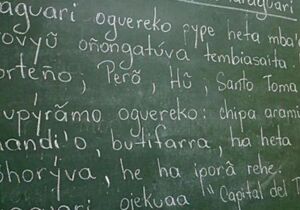 aguari oguereko pype heta mba'
ovyũ oñongatúva tembiasaita
orteño; Però, Hũ, Santo Toma
upyrãmo oguereko: chipa arami
nandi'o, butifarra, ha heta
ohorýva, he ha iporã rehe.
aguari ojekuaa "Capital del T